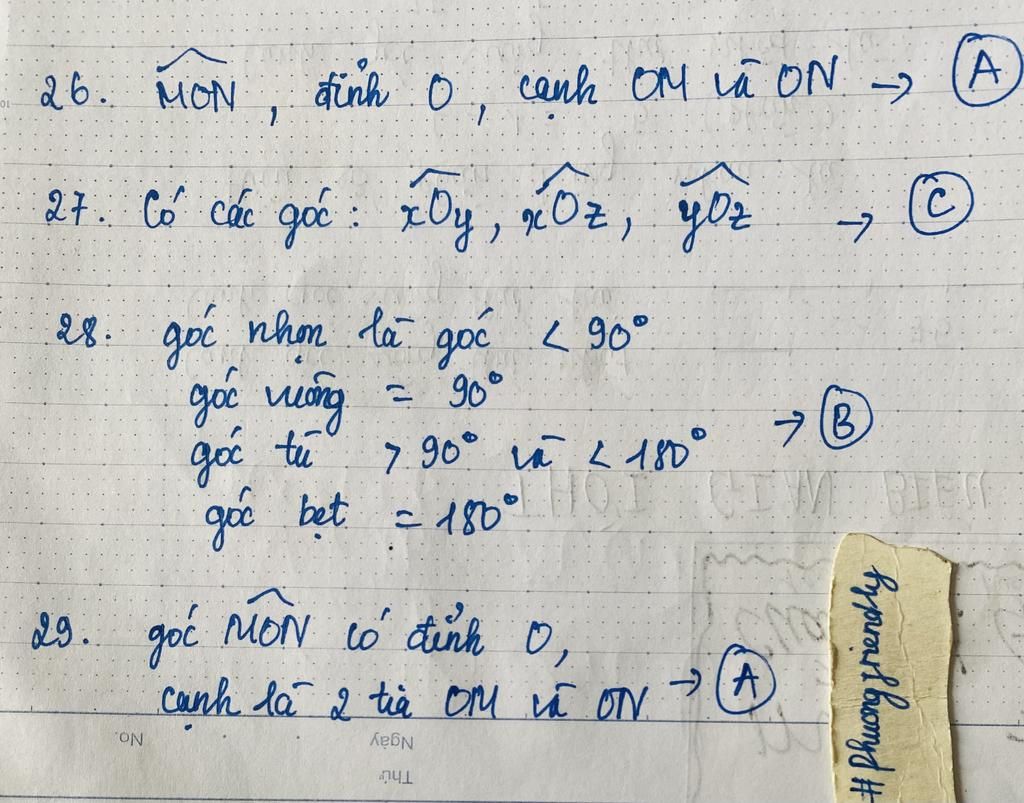 26. MON, đỉnh O, cạnh OM và ON → A
27. Có các góc: xOy, xOz, yOz → C
28. góc nhọn là góc < 90°
góc vuông = 90°
góc tù > 90° và < 180° → B
góc bẹt = 180°
THỜI GIAN BIỂU
29. góc MON có đỉnh O,
cạnh là 2 tia OM và ON → A
#phuongfriendly
No.
Ngày
Thứ